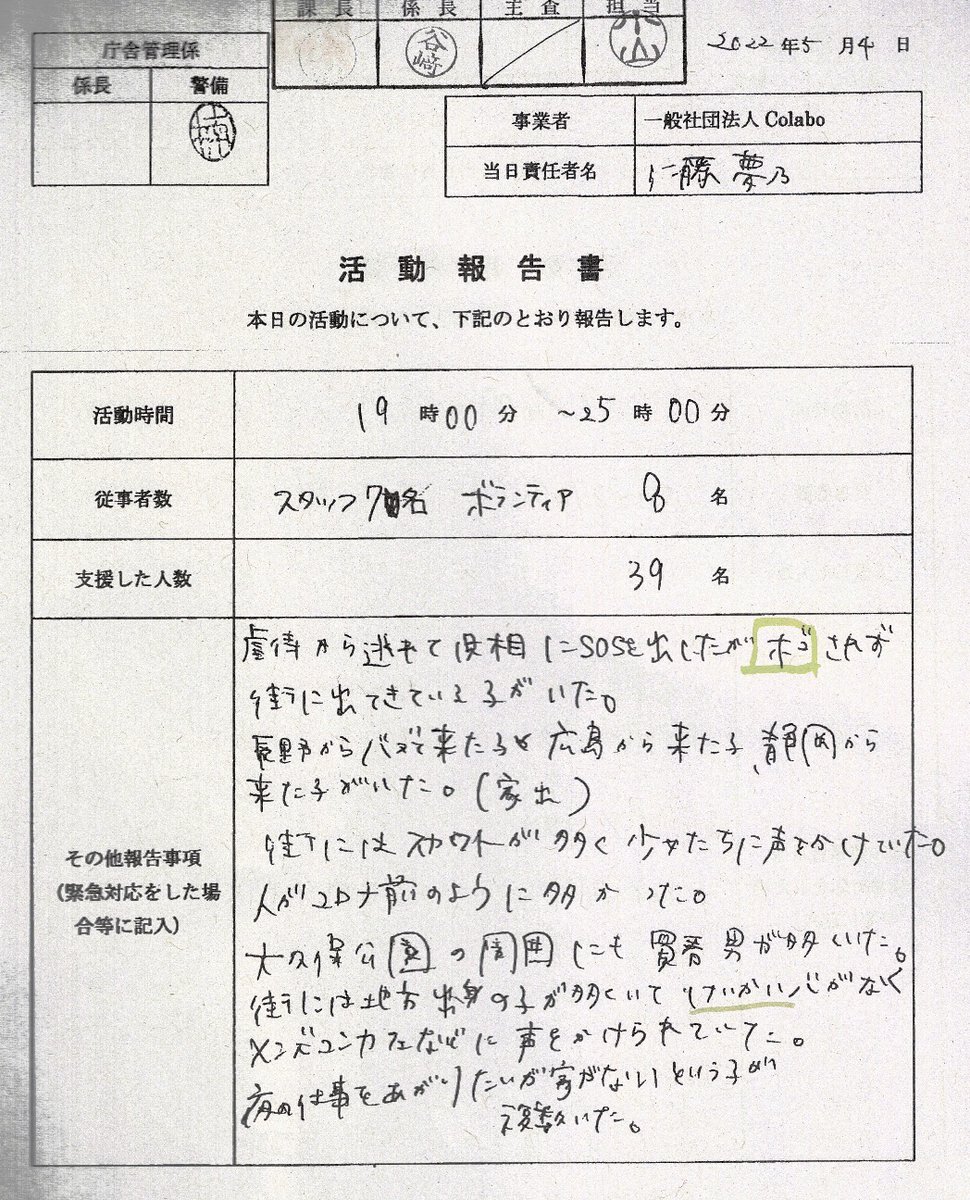 課長 係長 主査 担当
谷崎
2022年5月4日
庁舎管理係
係長 警備
事業者 一般社団法人Colabo
当日責任者名 仁藤夢乃
活動報告書
本日の活動について、下記のとおり報告します。
活動時間 19時00分 ～25時00分
従事者数 スタッフ7名 ボランティア 8名
支援した人数 39名
その他報告事項
(緊急対応をした場
合等に記入)
虐待から逃れて児相にSOSを出したがホゴされず
街に出てきている子がいた。
長野からバスで来た子や広島から来た子、静岡から
来た子がいた。(家出)
街にはスカウトが多く少女たちに声をかけていた。
人がコロナ前のように多かった。
大久保公園の周囲にも買春男が多くいた。
街には地方出身の子が多くいてけいかい心がなく
メンズコンカフェなどに声をかけられていた。
夜の仕事をあがりたいが家がないという子が
複数いた。